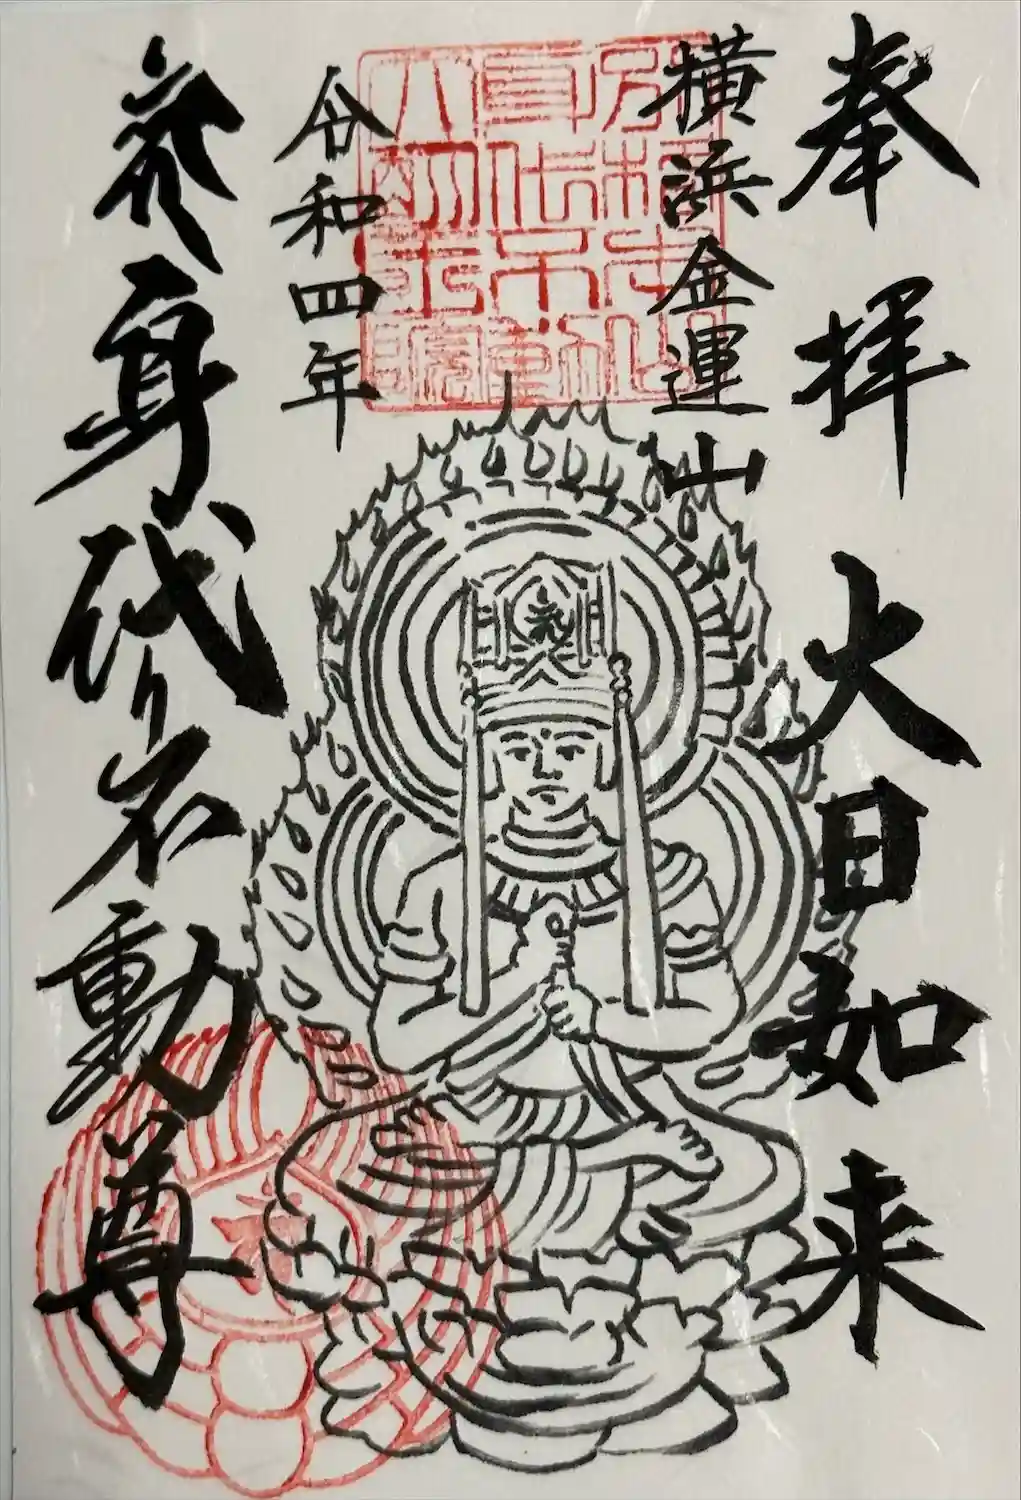 奉拝 大日如来
横浜金運山
令和四年
身代り不動尊